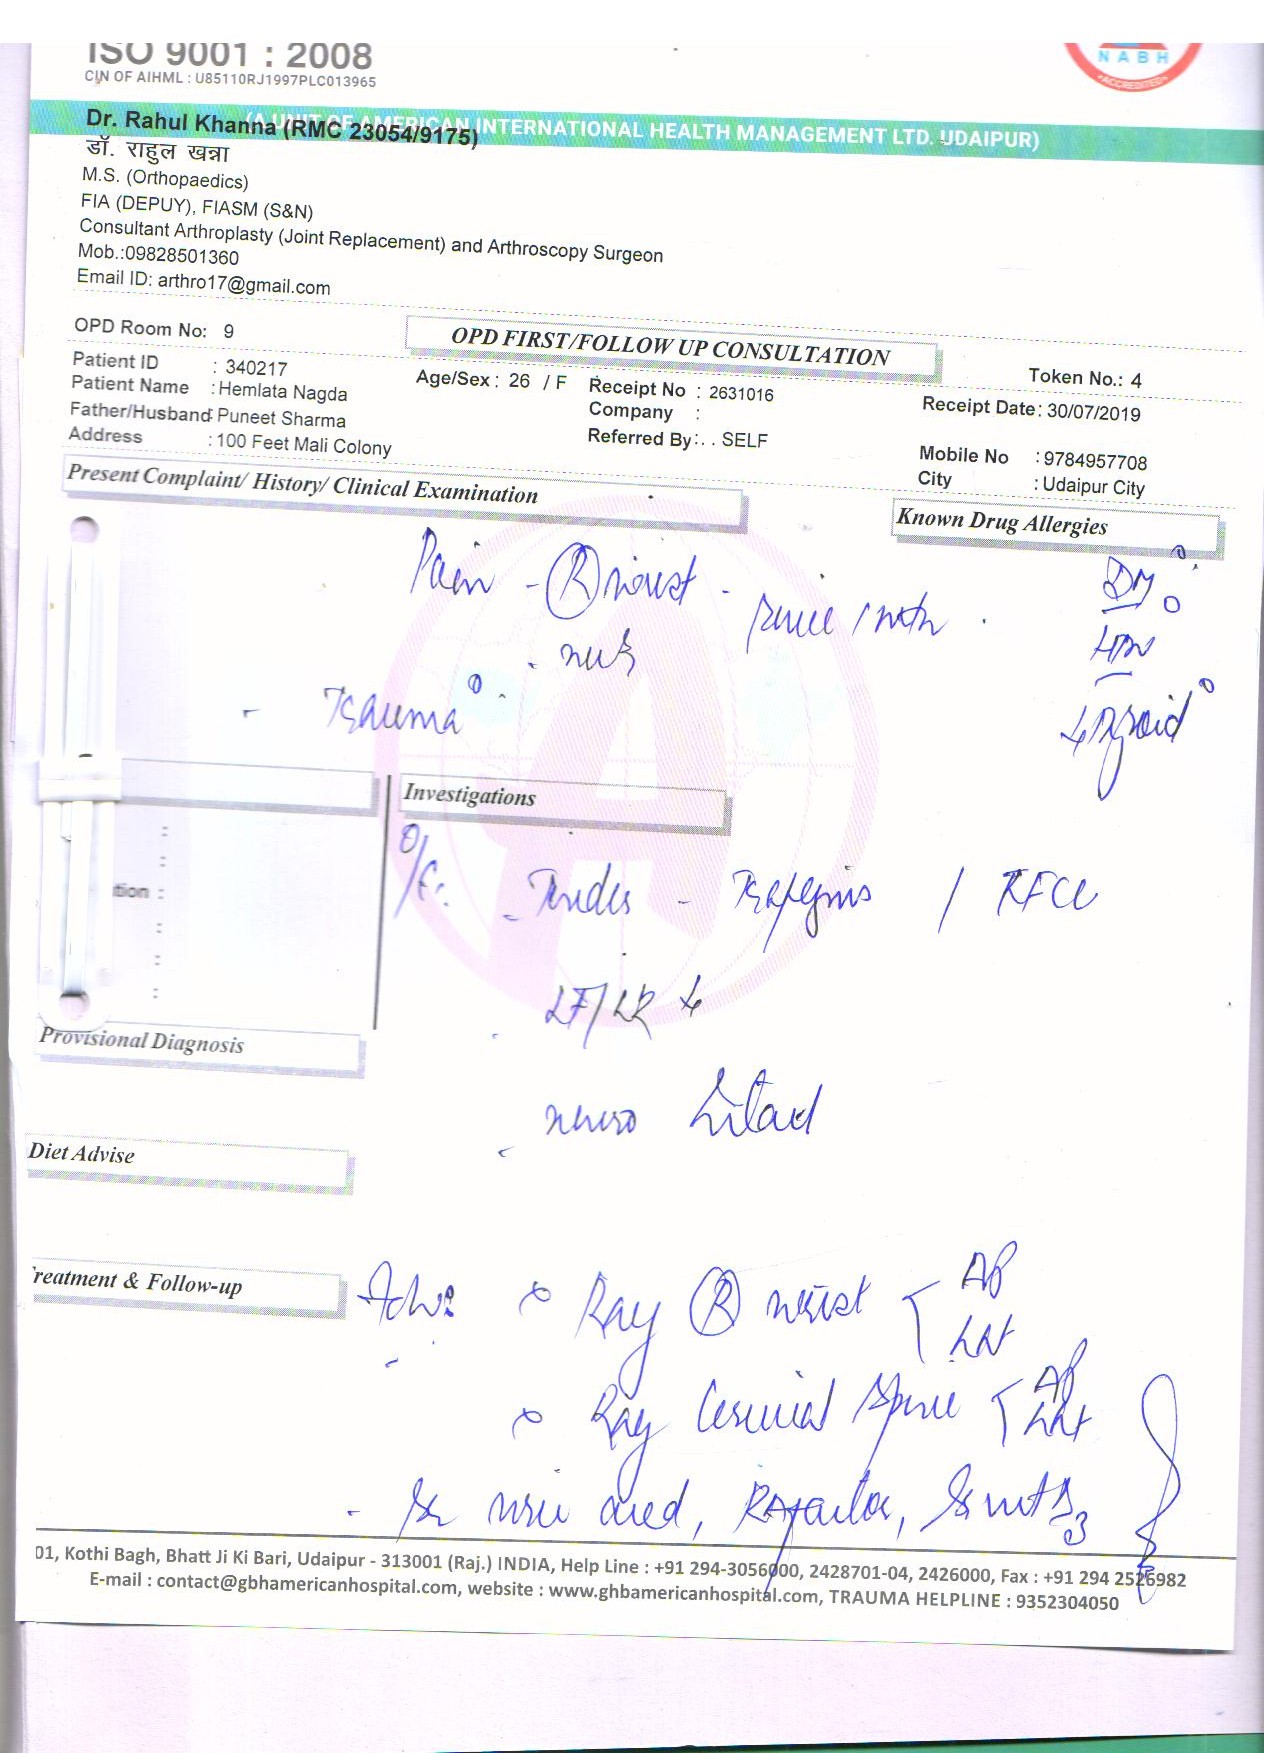 ISO 9001 : 2008
CIN OF AIHML : U85110RJ1997PLC013965
NABH
ACCREDITED
(A UNIT OF AMERICAN INTERNATIONAL HEALTH MANAGEMENT LTD. UDAIPUR)
Dr. Rahul Khanna (RMC 23054/9175)
डॉ. राहुल खन्ना
M.S. (Orthopaedics)
FIA (DEPUY), FIASM (S&N)
Consultant Arthroplasty (Joint Replacement) and Arthroscopy Surgeon
Mob.:09828501360
Email ID: arthro17@gmail.com
OPD Room No: 9
OPD FIRST/FOLLOW UP CONSULTATION
Token No.: 4
Patient ID : 340217
Patient Name : Hemlata Nagda
Age/Sex : 26 / F
Receipt No : 2631016
Receipt Date: 30/07/2019
Father/Husband: Puneet Sharma
Company :
Address : 100 Feet Mali Colony
Referred By:. . SELF
Mobile No : 9784957708
City : Udaipur City
Present Complaint/ History/ Clinical Examination
Known Drug Allergies
Pain - (R) wrist -
- neck
- Trauma 0
DM 0
HTN
Thyroid 0
Investigations
O/E:
- Tender - Trapezius / TFCC
tion :
Provisional Diagnosis
Diet Advise
Treatment & Follow-up
Adv:
Xray (R) wrist AP
LAT
Xray Cervical Spine AP
LAT
01, Kothi Bagh, Bhatt Ji Ki Bari, Udaipur - 313001 (Raj.) INDIA, Help Line : +91 294-3056000, 2428701-04, 2426000, Fax : +91 294 2526982
E-mail : contact@gbhamericanhospital.com, website : www.ghbamericanhospital.com, TRAUMA HELPLINE : 9352304050